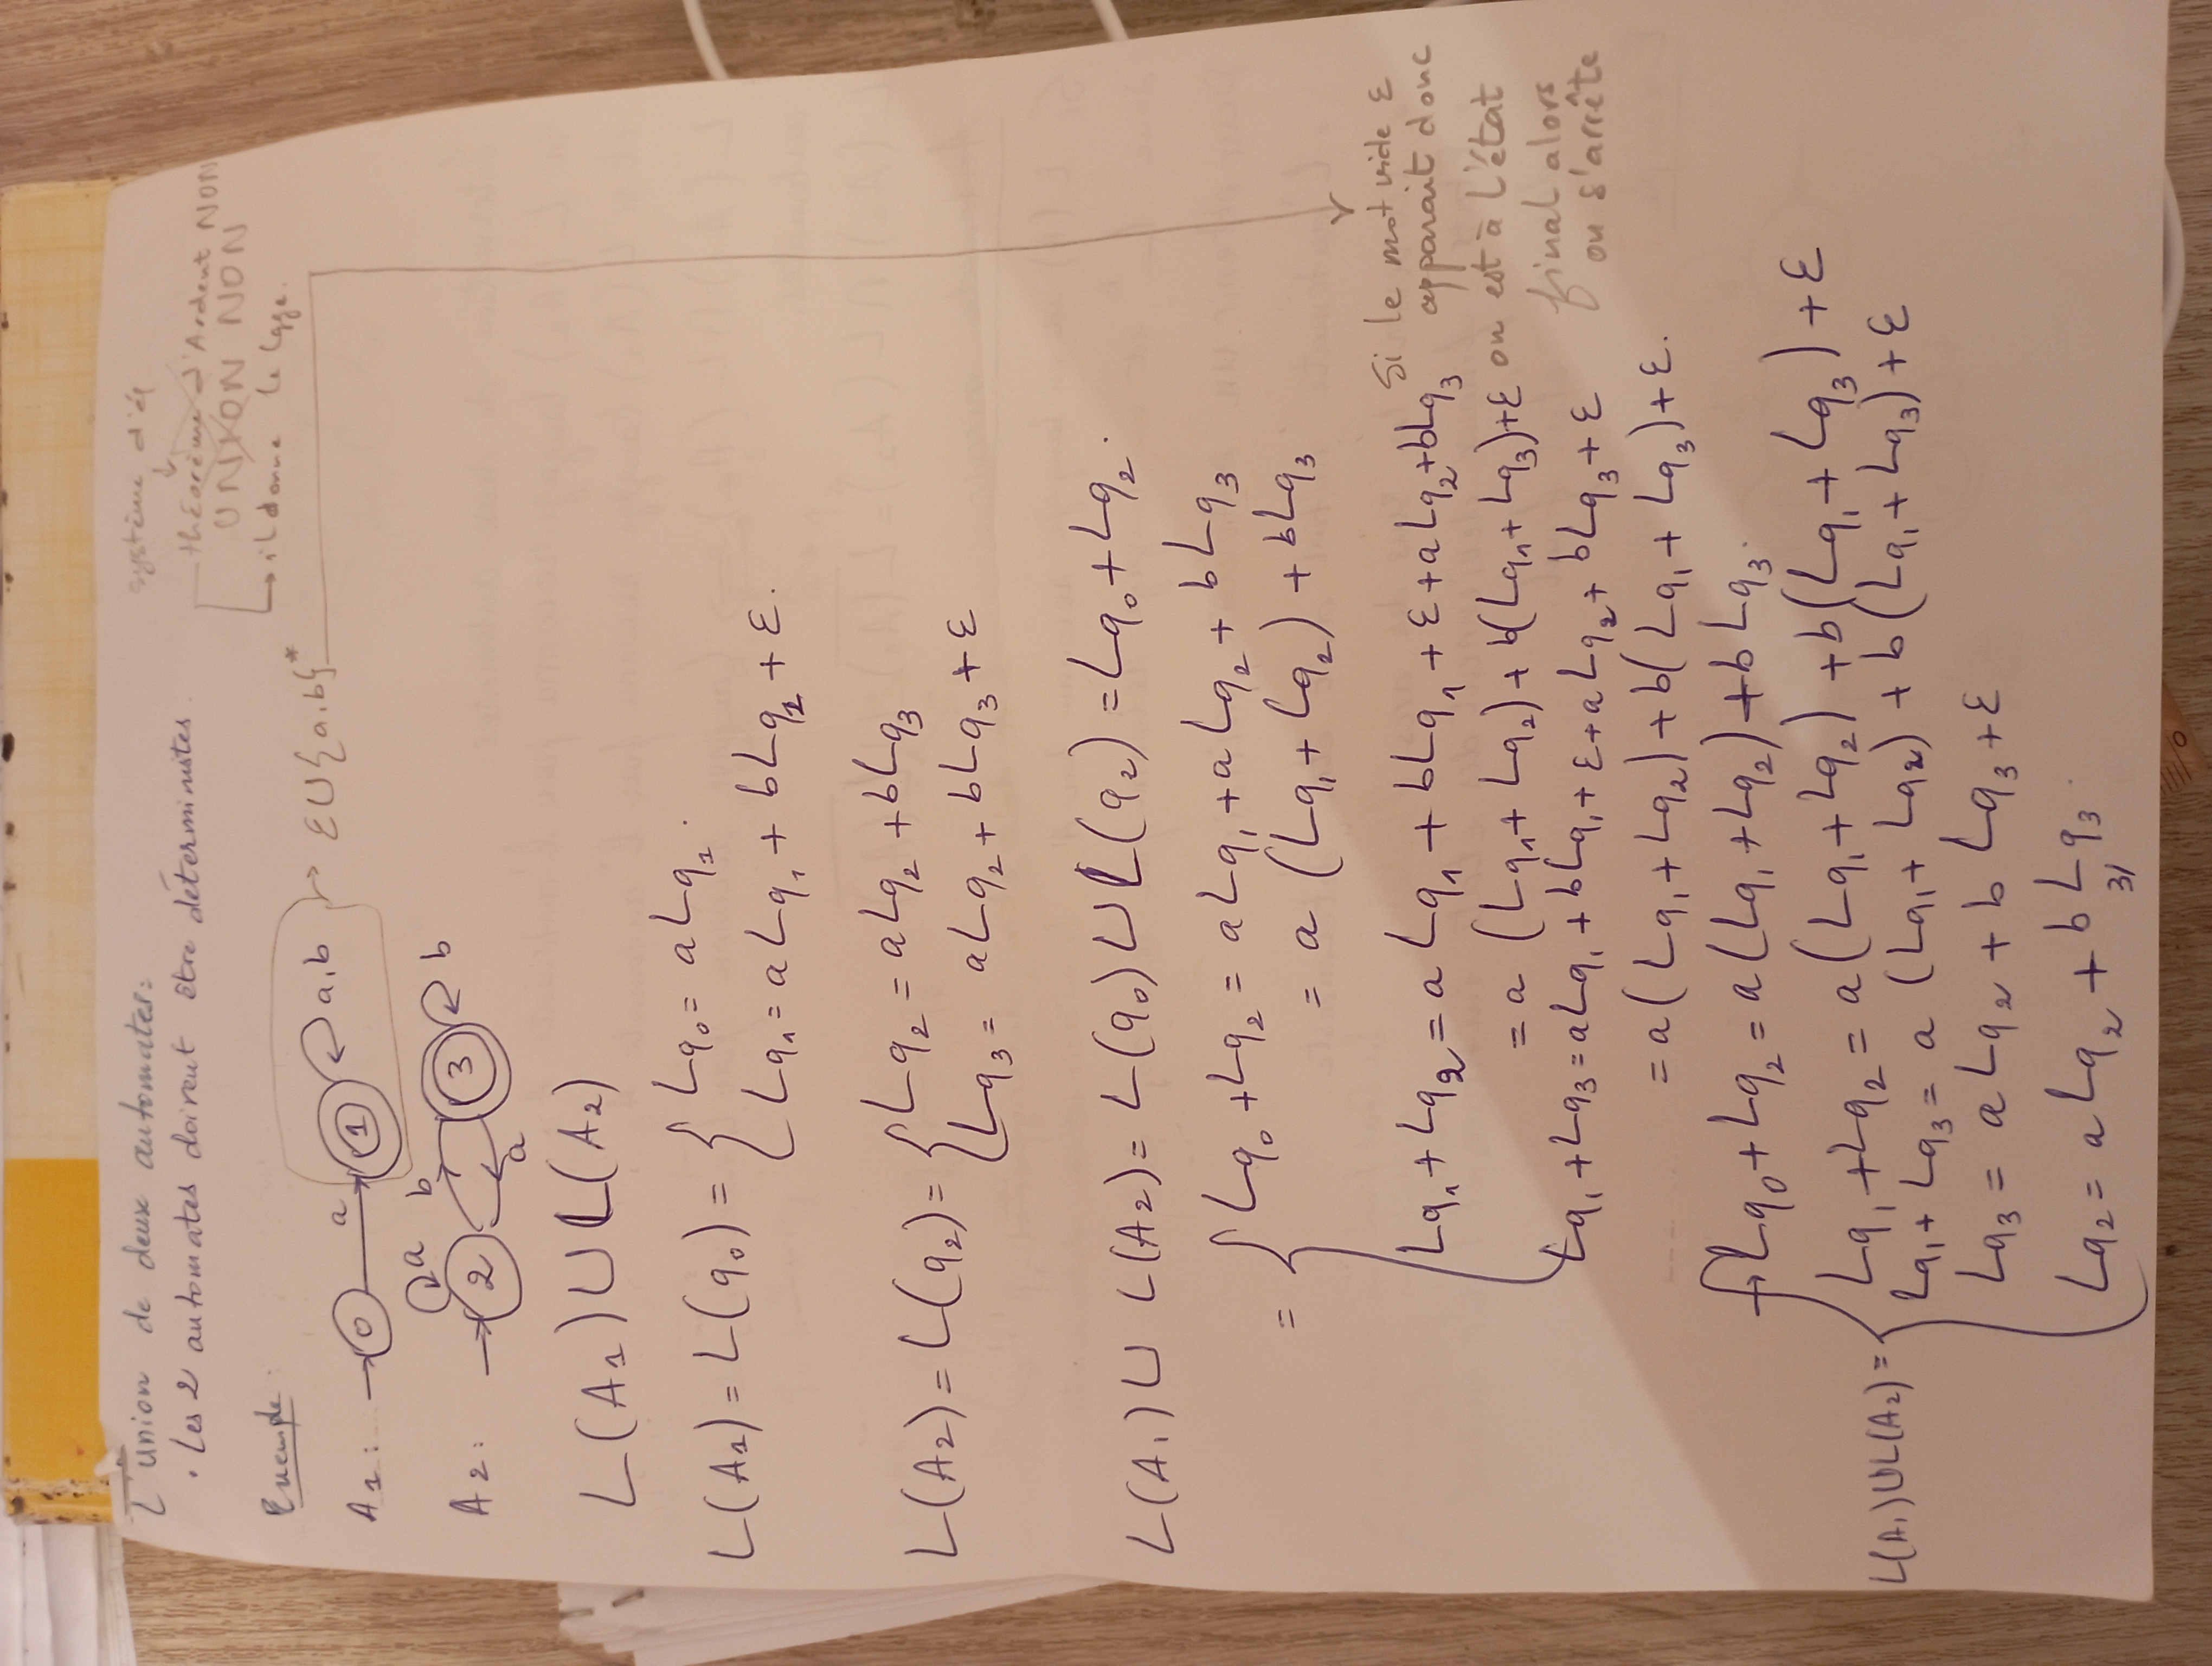 L'union de deux automates:
• Les 2 automates doivent être déterministes.
système d'éq
théorème d'Ardent NON
UNION NON
il donne le lgge.
Exemple:
A1: 0 a 1 a,b
εU{a,b}*
A2: a 2 b a 3 b
L(A1)UL(A2)
L(A1) = L(q0) = { Lq0 = aLq1.
Lq1 = aLq1 + bLq1 + ε.
L(A2) = L(q2) = { Lq2 = aLq2 + bLq3
Lq3 = aLq2 + bLq3 + ε
L(A1) U L(A2) = L(q0) U L(q2) = Lq0 + Lq2.
= { Lq0 + Lq2 = aLq1 + aLq2 + bLq3
= a (Lq1 + Lq2) + bLq3
Lq1 + Lq2 = aLq1 + bLq1 + ε + aLq2 + bLq3
= a (Lq1 + Lq2) + b(Lq1 + Lq3) + ε
Lq1 + Lq3 = aLq1 + bLq1 + ε + aLq2 + bLq3 + ε
= a(Lq1 + Lq2) + b(Lq1 + Lq3) + ε.
Si le mot vide ε
apparait donc
on est à l'état
final alors
on s'arrête
L(A1)UL(A2) = { → Lq0 + Lq2 = a(Lq1 + Lq2) + bLq3.
Lq1 + Lq2 = a(Lq1 + Lq2) + b(Lq1 + Lq3) + ε
Lq1 + Lq3 = a (Lq1 + Lq2) + b(Lq1 + Lq3) + ε
Lq3 = aLq2 + bLq3 + ε
Lq2 = aLq2 + bLq3.
31